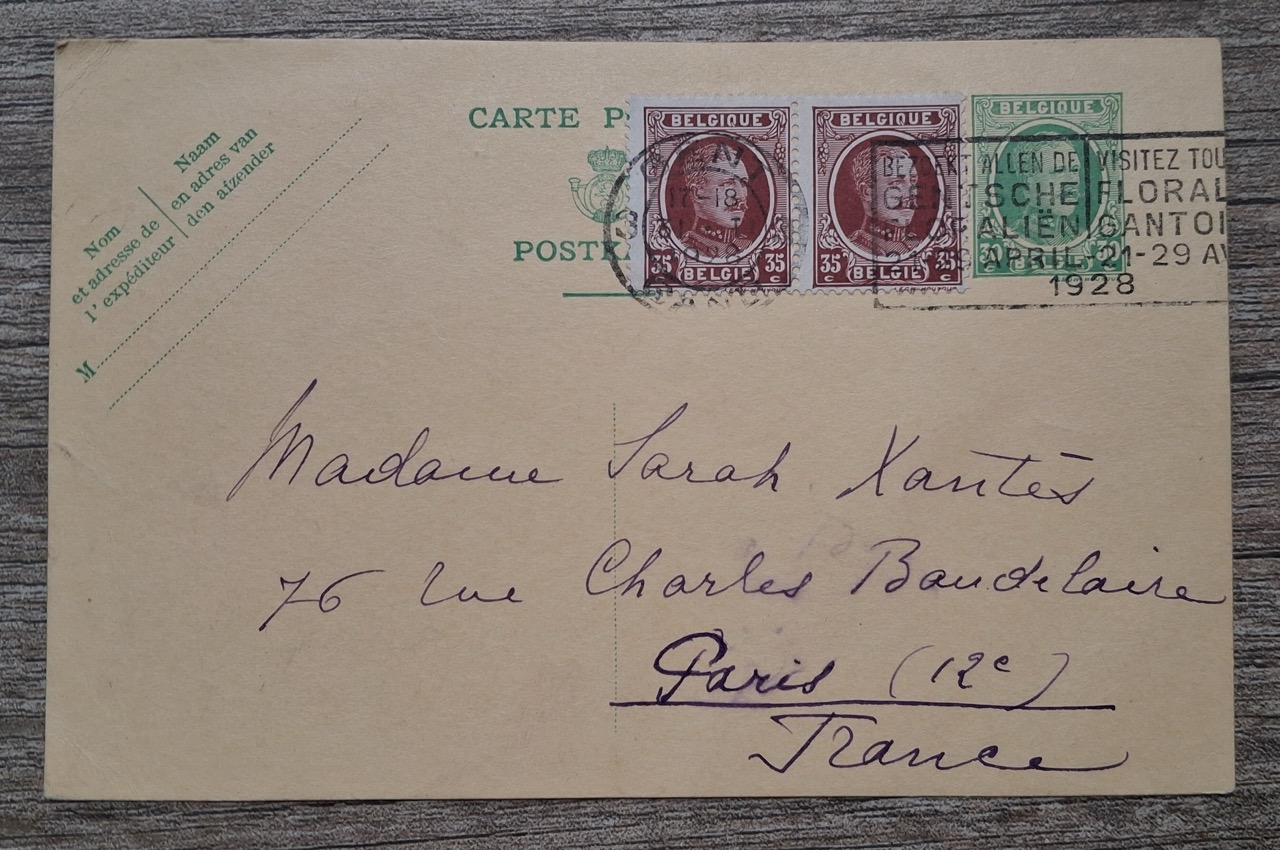 Nom
et adresse de
l'expéditeur
Naam
en adres van
den afzender
M
CARTE P
POSTK
BELGIQUE
35 35
BELGIË
BELGIQUE
35
BELGIË
BELGIQUE
17-18
BEZOEKT ALLEN DE
GENTSCHE
FLORALIËN
APRIL
VISITEZ TOU
FLORAL
GANTOI
21-29 AV
1928
Madame Sarah Xantès
76 rue Charles Baudelaire
Paris (12e)
France